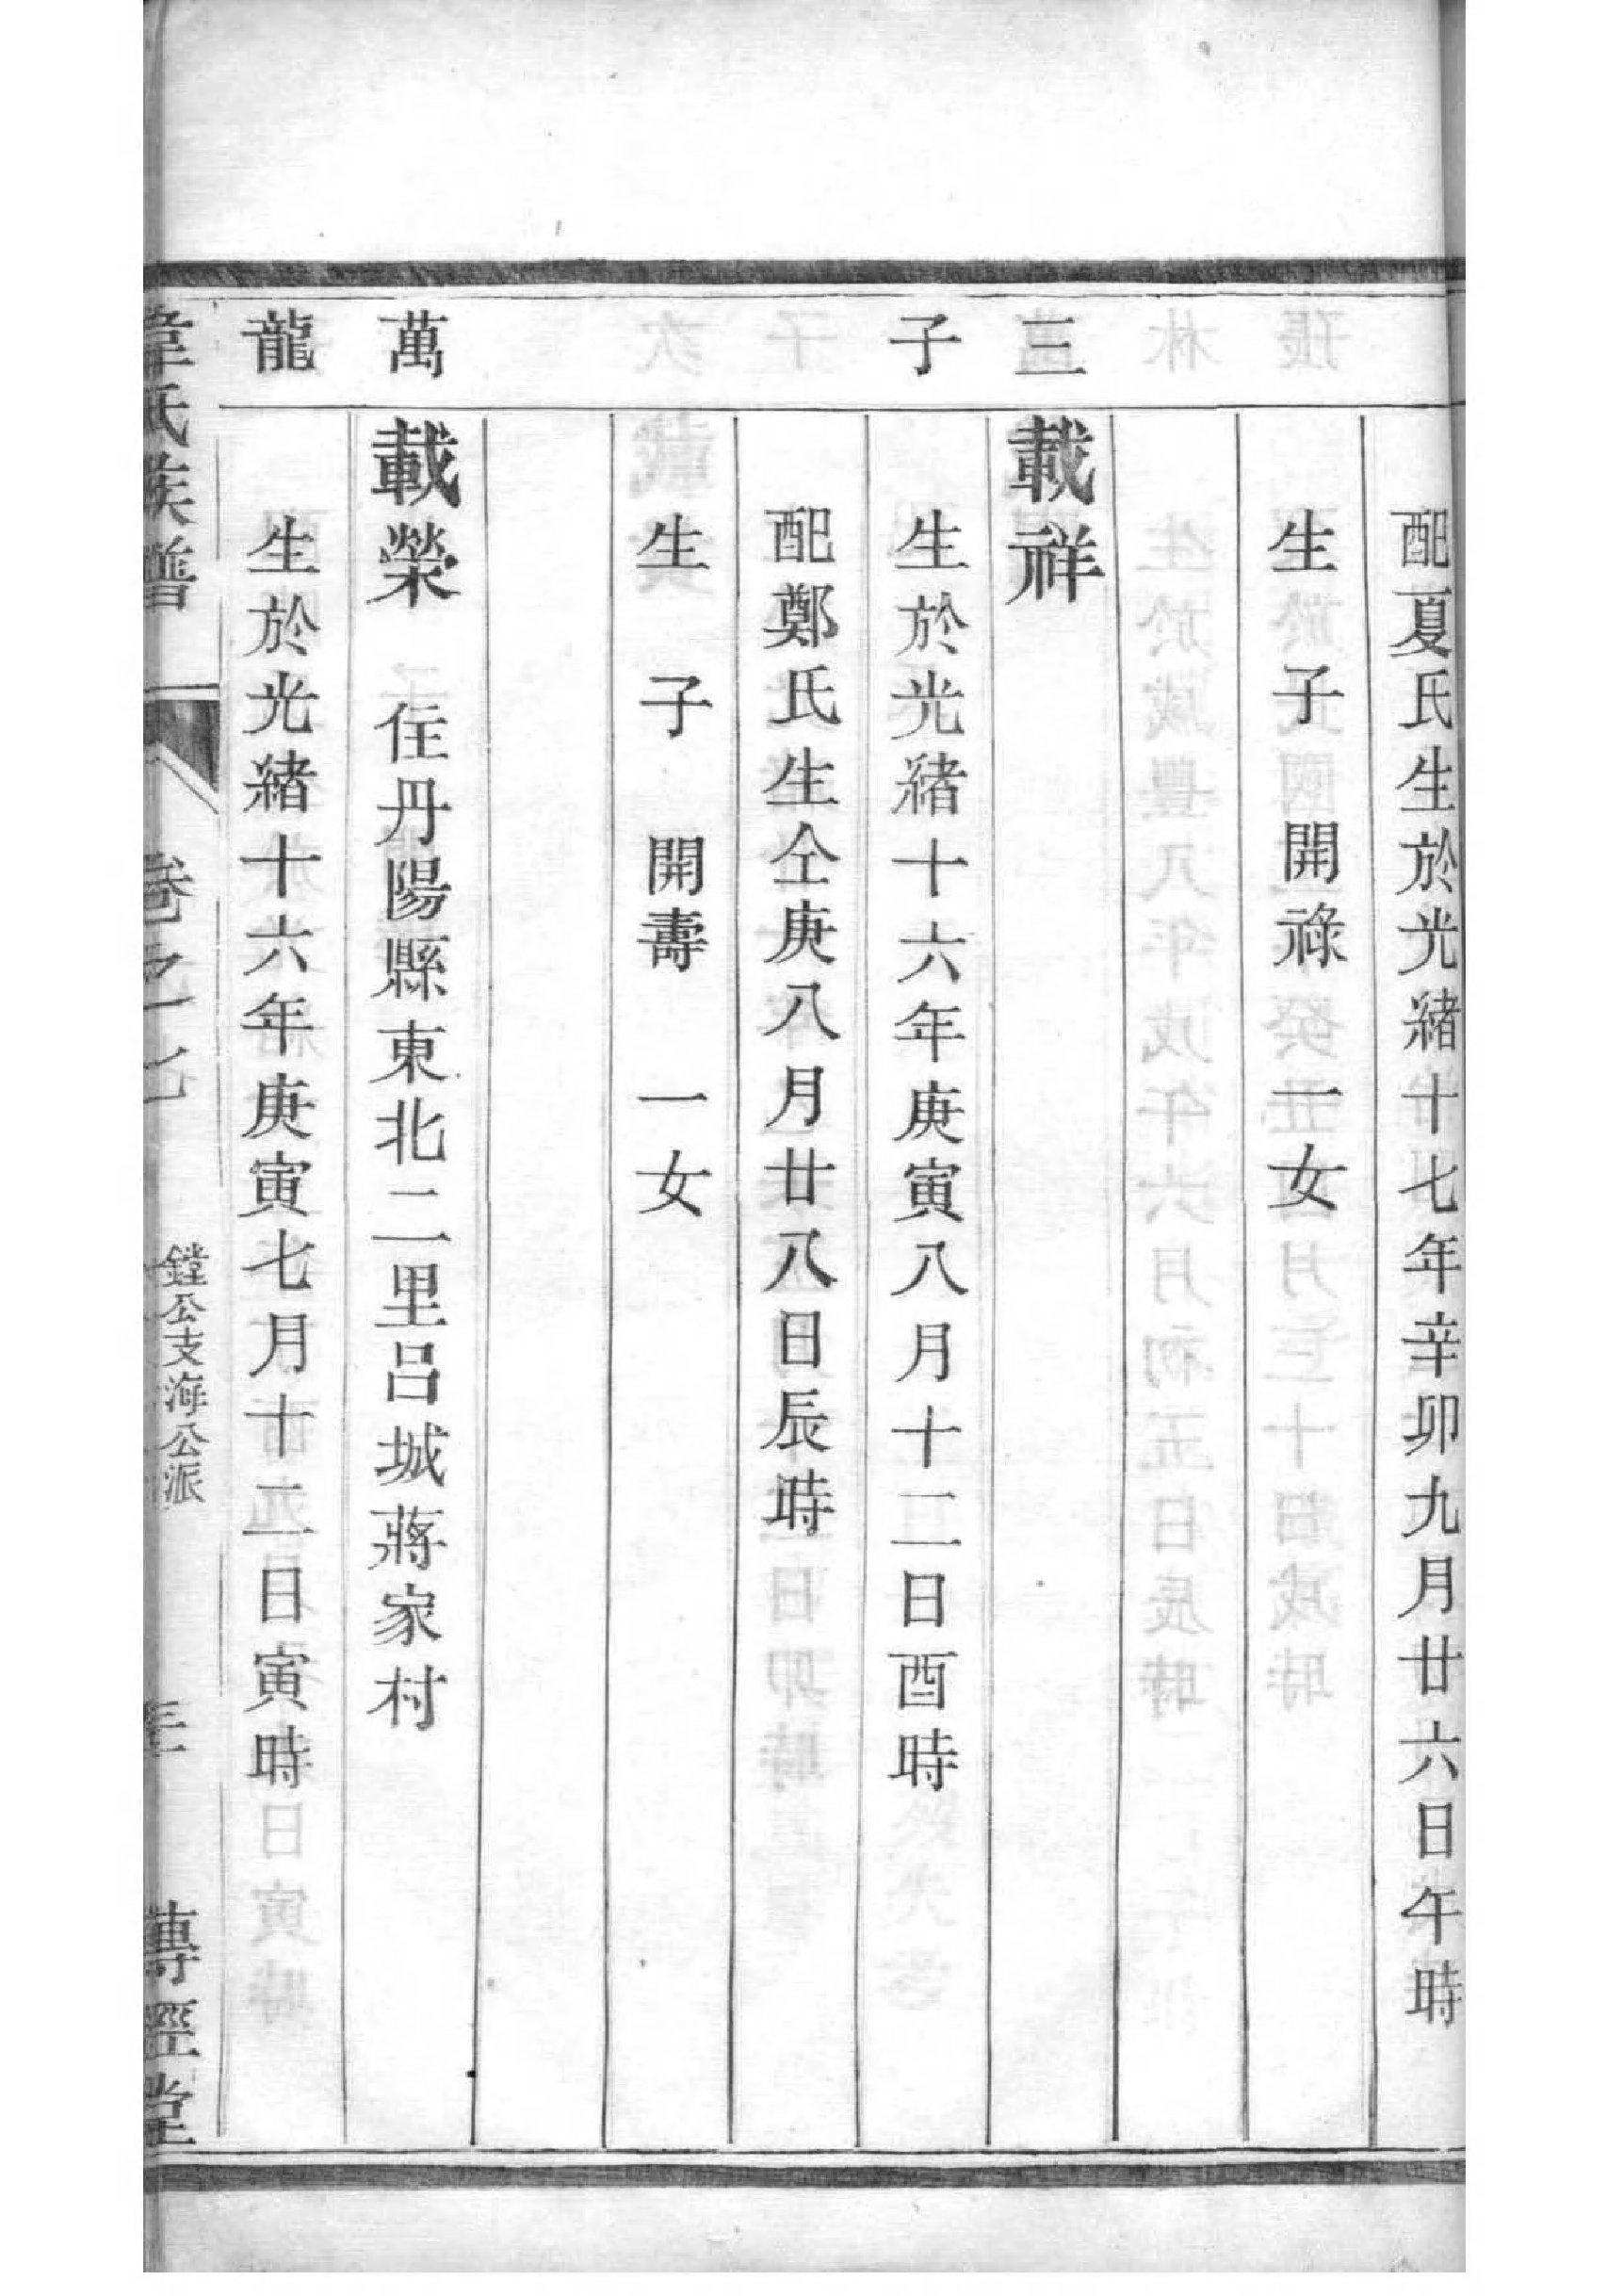 配夏氏生於光緒十七年辛卯九月廿六日午時
生 子 開祿 一女
三
載祥
子
生於光緒十六年庚寅八月十二日酉時
配鄭氏生仝庚八月廿八日辰時
生 子 開壽 一女
萬
載榮 住丹陽縣東北二里呂城蔣家村
龍
生於光緒十六年庚寅七月十二日寅時
韋氏族譜 卷之七 鏜公支海公派 傳經堂